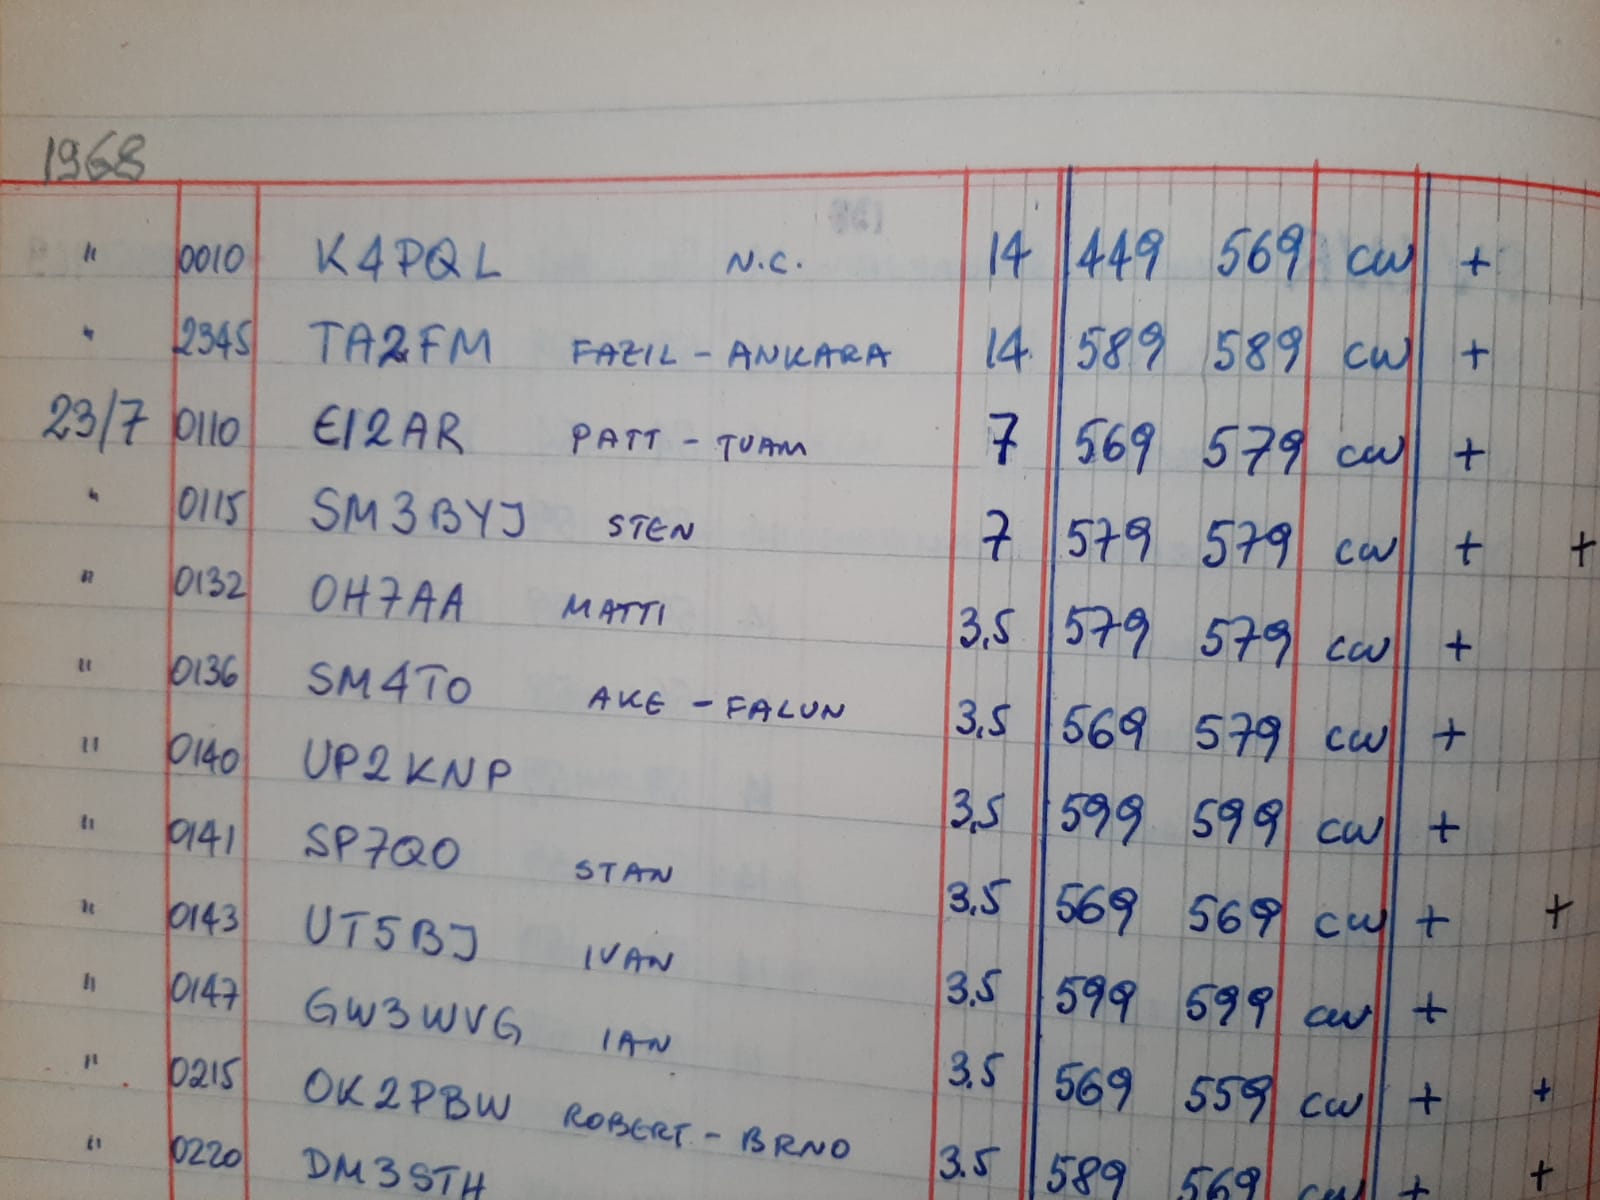 1968
" 0010 K4PQL N.C. 14 449 569 CW +
" 2345 TA2FM FAZIL - ANKARA 14 589 589 CW +
23/7 0110 EI2AR PATT - TUAM 7 569 579 CW +
" 0115 SM3BYJ STEN 7 579 579 CW + +
" 0132 OH7AA MATTI 3.5 579 579 CW +
" 0136 SM4TO AKE - FALUN 3.5 569 579 CW +
" 0140 UP2KNP 3.5 599 599 CW +
" 0141 SP7QO STAN 3.5 569 569 CW + +
" 0143 UT5BJ IVAN 3.5 599 599 CW +
" 0147 GW3WVG IAN 3.5 569 559 CW + +
" 0215 OK2PBW ROBERT - BRNO 3.5 589 569 CW + +
" 0220 DM3STH